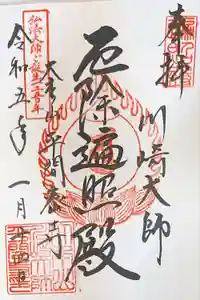 奉拝
川崎大師
厄除遍照殿
大本山平間寺
弘法大師ご誕生一二五〇年
令和五年一月廿四日